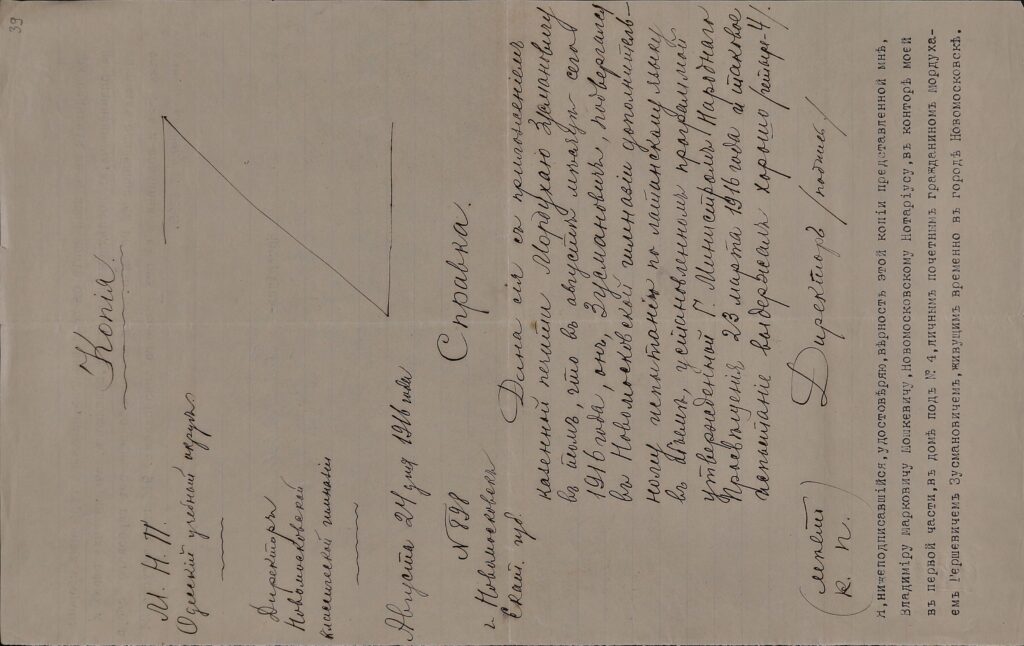 39
Копія.
М. Н. П.
Одесскій учебный округъ
Директоръ
Новомосковской
классической гимназіи
Августа 24 дня 1916 года
№ 898
г. Новомосковскъ
Екат. губ.
Справка.
Дана сія съ приложеніемъ
казенной печати Мордухаю Зусмановичу
въ томъ, что въ августѣ мѣсяцѣ сего
1916 года, онъ, Зусмановичъ, подвергался
въ Новомосковской гимназіи дополнитель-
ному испытанію по латинскому языку
въ объемѣ, установленномъ программой
утвержденной Г. Министромъ Народнаго
Просвѣщенія 23 марта 1916 года и таковое
испытаніе выдержалъ хорошо /четыре-4/.
Директоръ /подпись/
(мѣсто
к. п.)
Я, нижеподписавшійся, удостовѣряю, вѣрность этой копіи представленной мнѣ,
Владиміру Марковичу Мошкевичу, Новомосковскому Нотаріусу, въ конторѣ моей
въ первой части, въ домѣ подъ № 4, личнымъ почетнымъ гражданиномъ Мордуха-
емъ Гершевичемъ Зусмановичемъ, живущимъ временно въ городѣ Новомосковскѣ.